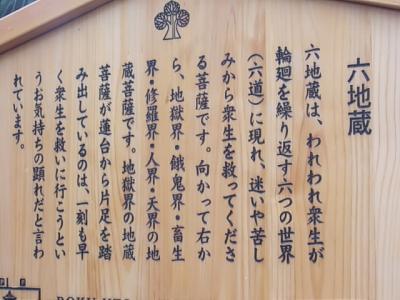 六地蔵
六地蔵は、われわれ衆生が
輪廻を繰り返す六つの世界
(六道)に現れ、迷いや苦し
みから衆生を救ってくださ
る菩薩です。向かって右か
ら、地獄界・餓鬼界・畜生
界・修羅界・人界・天界の地
蔵菩薩です。地獄界の地蔵
菩薩が蓮台から片足を踏
み出しているのは、一刻も早
く衆生を救いに行こうとい
うお気持ちの顕れだと言わ
れています。